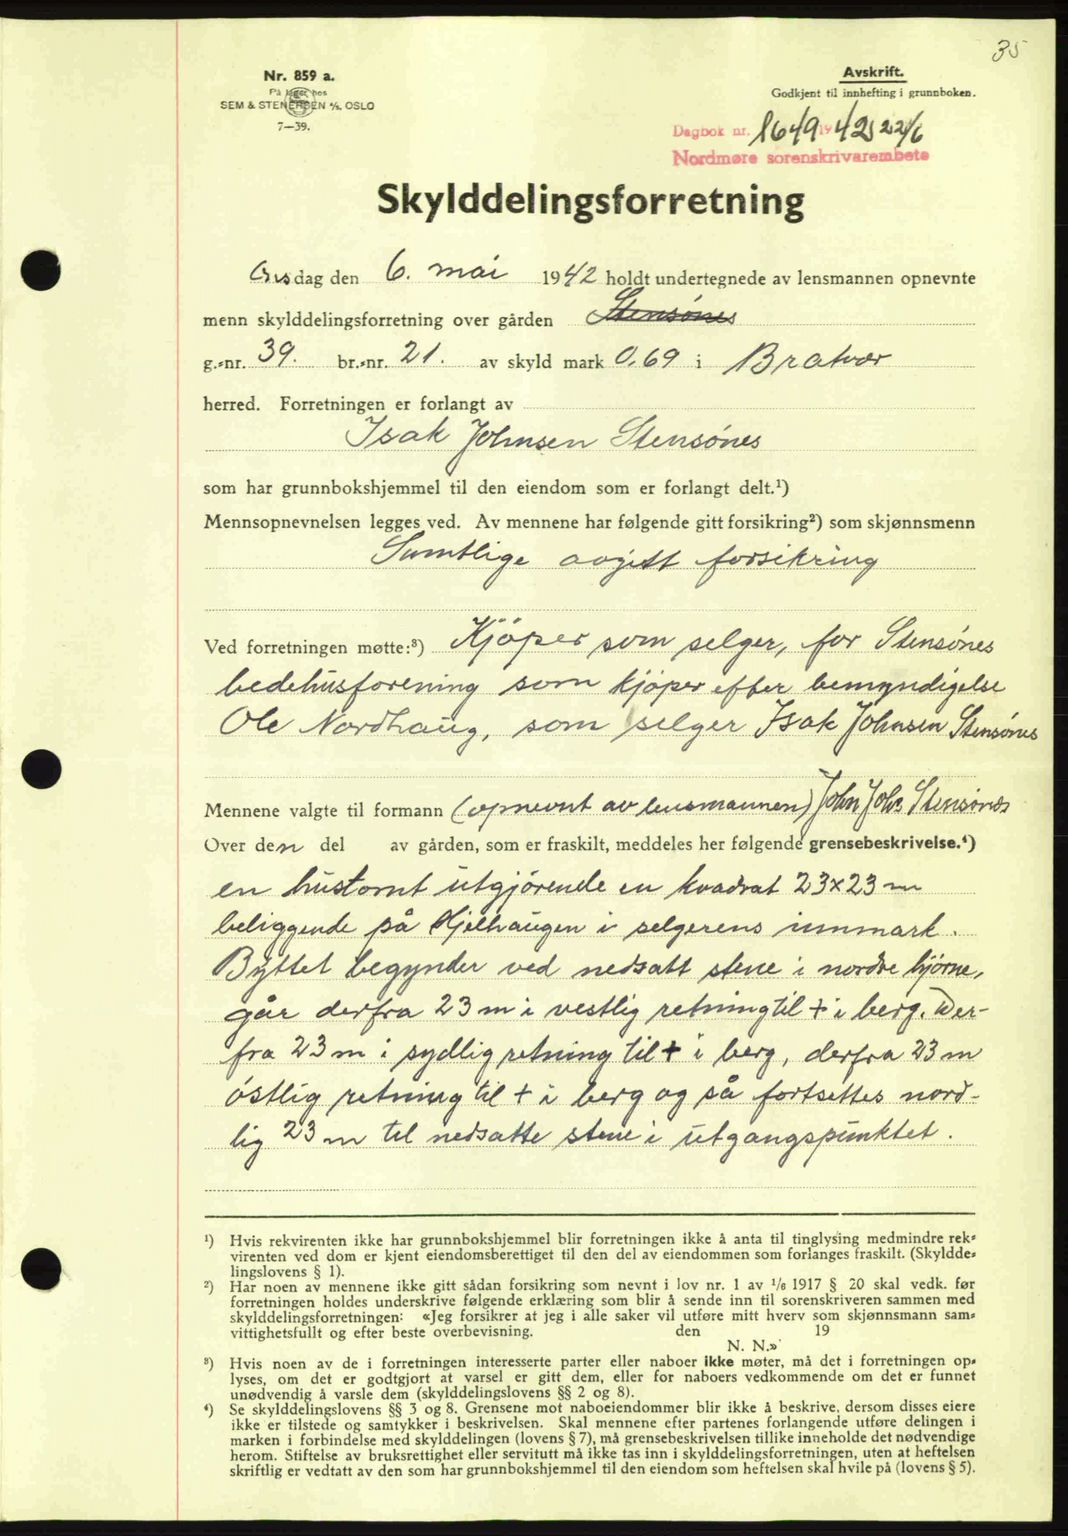 35
Nr. 859 a.
På lager hos
SEM & STENERSEN A/S. OSLO
7—39.
Avskrift.
Godkjent til innhefting i grunnboken.
Dagbok nr. 1649 1942 22/6
Nordmøre sorenskrivarembete
Skylddelingsforretning
Onsdag den 6. mai 1942 holdt undertegnede av lensmannen opnevnte
menn skylddelingsforretning over gården Stensönes
g.-nr. 39. br.-nr. 21. av skyld mark 0,69 i Bratvær
herred. Forretningen er forlangt av
Isak Johnsen Stensönes
som har grunnbokshjemmel til den eiendom som er forlangt delt.¹)
Mennsopnevnelsen legges ved. Av mennene har følgende gitt forsikring²) som skjønnsmenn
Samtlige avgitt forsikring
Ved forretningen møtte:³) Kjöper som selger, for Stensönes
bedehusforening som kjöper efter bemyndigelse
Ole Nordhaug, som selger Isak Johnsen Stensönes
Mennene valgte til formann (opnevnt av lensmannen) John Johs Stensönes
Over den del av gården, som er fraskilt, meddeles her følgende grensebeskrivelse.⁴)
en hustomt utgjörende en kvadrat 23x23 m
beliggende på Hjelhaugen i selgerens innmark.
Byttet begynder ved nedsatt stene i nordre hjörne,
går derfra 23 m i vestlig retning til + i berg. Der-
fra 23 m i sydlig retning til + i berg, derfra 23 m
östlig retning til + i berg og så fortsettes nord-
lig 23 m til nedsatte stene i utgangspunktet.
¹) Hvis rekvirenten ikke har grunnbokshjemmel blir forretningen ikke å anta til tinglysing medmindre rek-
virenten ved dom er kjent eiendomsberettiget til den del av eiendommen som forlanges fraskilt. (Skyldde-
lingslovens § 1).
²) Har noen av mennene ikke gitt sådan forsikring som nevnt i lov nr. 1 av 1/6 1917 § 20 skal vedk. før
forretningen holdes underskrive følgende erklæring som blir å sende inn til sorenskriveren sammen med
skylddelingsforretningen: «Jeg forsikrer at jeg i alle saker vil utføre mitt hverv som skjønnsmann sam-
vittighetsfullt og efter beste overbevisning. den 19
N. N.»
³) Hvis noen av de i forretningen interesserte parter eller naboer ikke møter, må det i forretningen op-
lyses, om det er godtgjort at varsel er gitt dem, eller for naboers vedkommende om det er funnet
unødvendig å varsle dem (skylddelingslovens §§ 2 og 8).
⁴) Se skylddelingslovens §§ 3 og 8. Grensene mot naboeiendommer blir ikke å beskrive, dersom disses eiere
ikke er tilstede og samtykker i beskrivelsen. Skal mennene efter partenes forlangende utføre delingen i
marken i forbindelse med skylddelingen (lovens § 7), må grensebeskrivelsen tillike inneholde det nødvendige
herom. Stiftelse av bruksrettighet eller servitutt må ikke tas inn i skylddelingsforretningen, uten at heftelsen
skriftlig er vedtatt av den som har grunnbokshjemmel til den eiendom som heftelsen skal hvile på (lovens § 5).